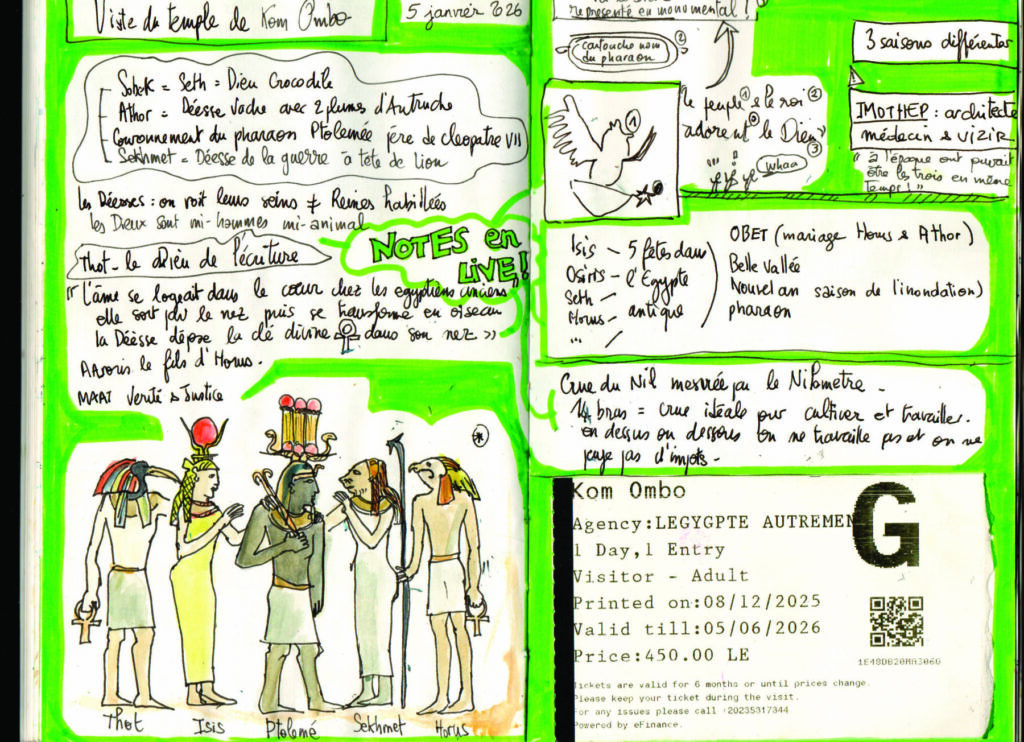 Viste du temple de Kom Ombo
5 janvier 2026
Sobek = Seth = Dieu Crocodile
Athor = Déesse Vache avec 2 plumes d'Autruche
Couronnement du pharaon Ptolemée père de cleopatre VII
Sekhmet = Déesse de la guerre à tête de lion
les Déesses : on voit leurs seins ≠ Reines habillées
les Dieux sont mi-hommes mi-animal
Thot - le Dieu de l'écriture
NOTES en
LIVE!
"L'âme se logeait dans le cœur chez les egyptiens anciens"
elle sort par le nez puis se transforme en oiseau
la Déesse dépose la clé divine dans son nez »
le fils d'Horus.
MAAT Verité & Justice
Thot
Isis
Ptolemé
Sekhmet
Horus
représenté en monumental !
cartouche nom
du pharaon
2
le peuple 1 & le roi 2
adorent le Dieu »
3
whaa
1
3 saisons différentes
IMOTHEP : architecte
médecin & VIZIR
"à l'époque ont pouvait
être les trois en même
temps !"
Isis - 5 fêtes dans
Osiris - l'Egypte
Seth - antique
Horus -
OBET (mariage Horus & Athor)
Belle Vallée
Nouvel an saison de l'inondation)
pharaon
Crue du Nil mesurée par le Nilometre -
14 bras = crue idéale pour cultiver et travailler.
en dessus ou dessous on ne travaille pas et on ne
paye pas d'impots -
Kom Ombo
Agency:LEGYGPTE AUTREMEN
1 Day,1 Entry
Visitor - Adult
Printed on:08/12/2025
Valid till:05/06/2026
Price:450.00 LE
G
1E48DB20MA3066
Tickets are valid for 6 months or until prices change.
Please keep your ticket during the visit.
For any issues please call +20235317344
Powered by eFinance.